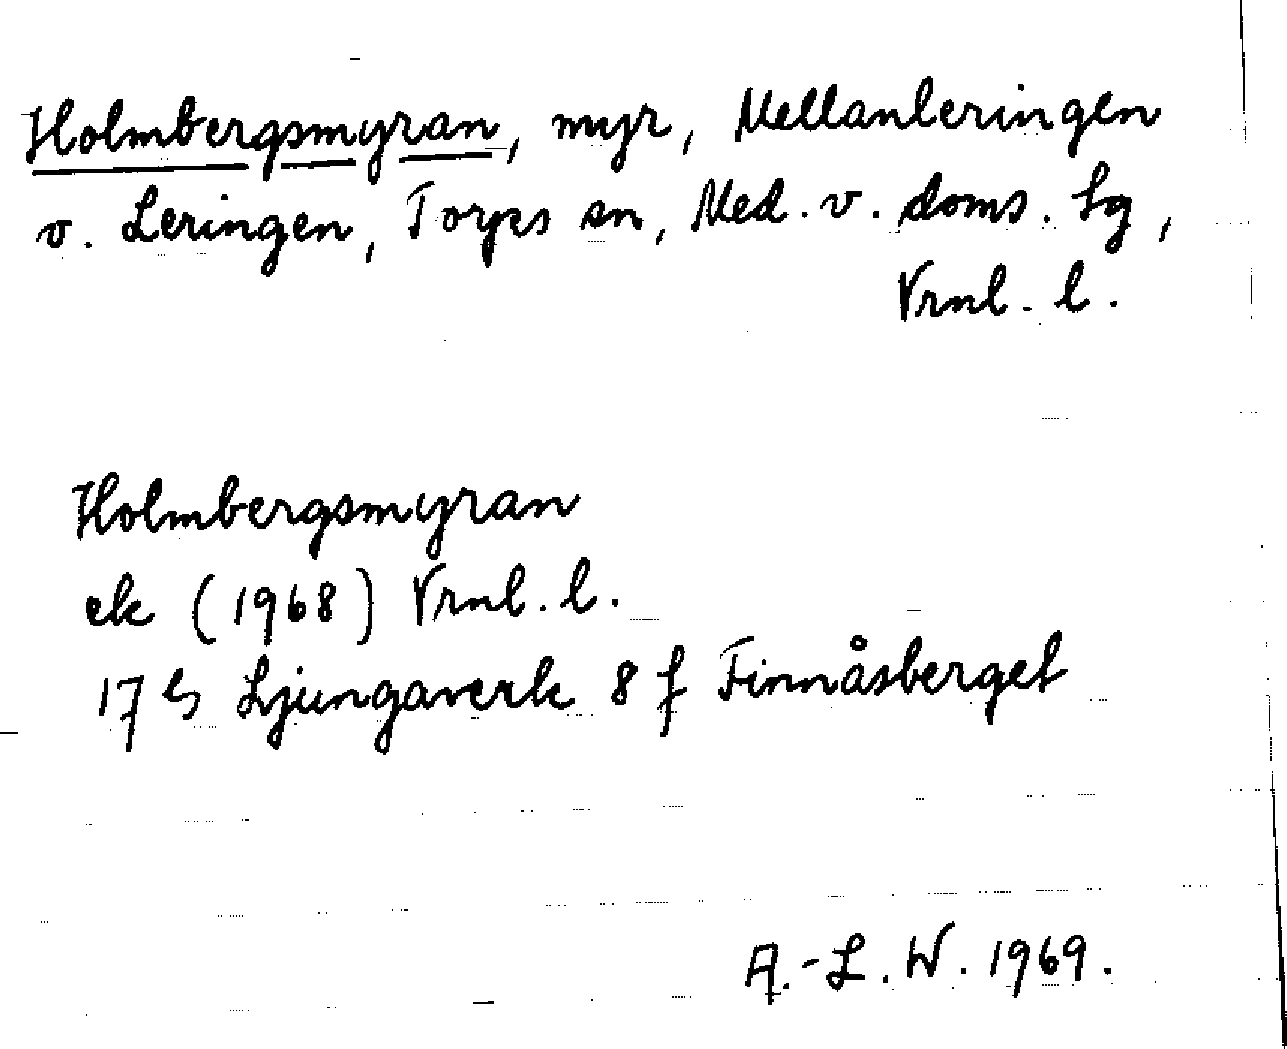 Holmbergsmyran, myr, Mellanleringen
v. Leringen, Torps sn, Med. v. doms. tg,
Vrnl. l.
Holmbergsmyran
ek (1968) Vrnl. l.
17 G Ljungaverk 8 f Finnåsberget
A.-L. W. 1969.